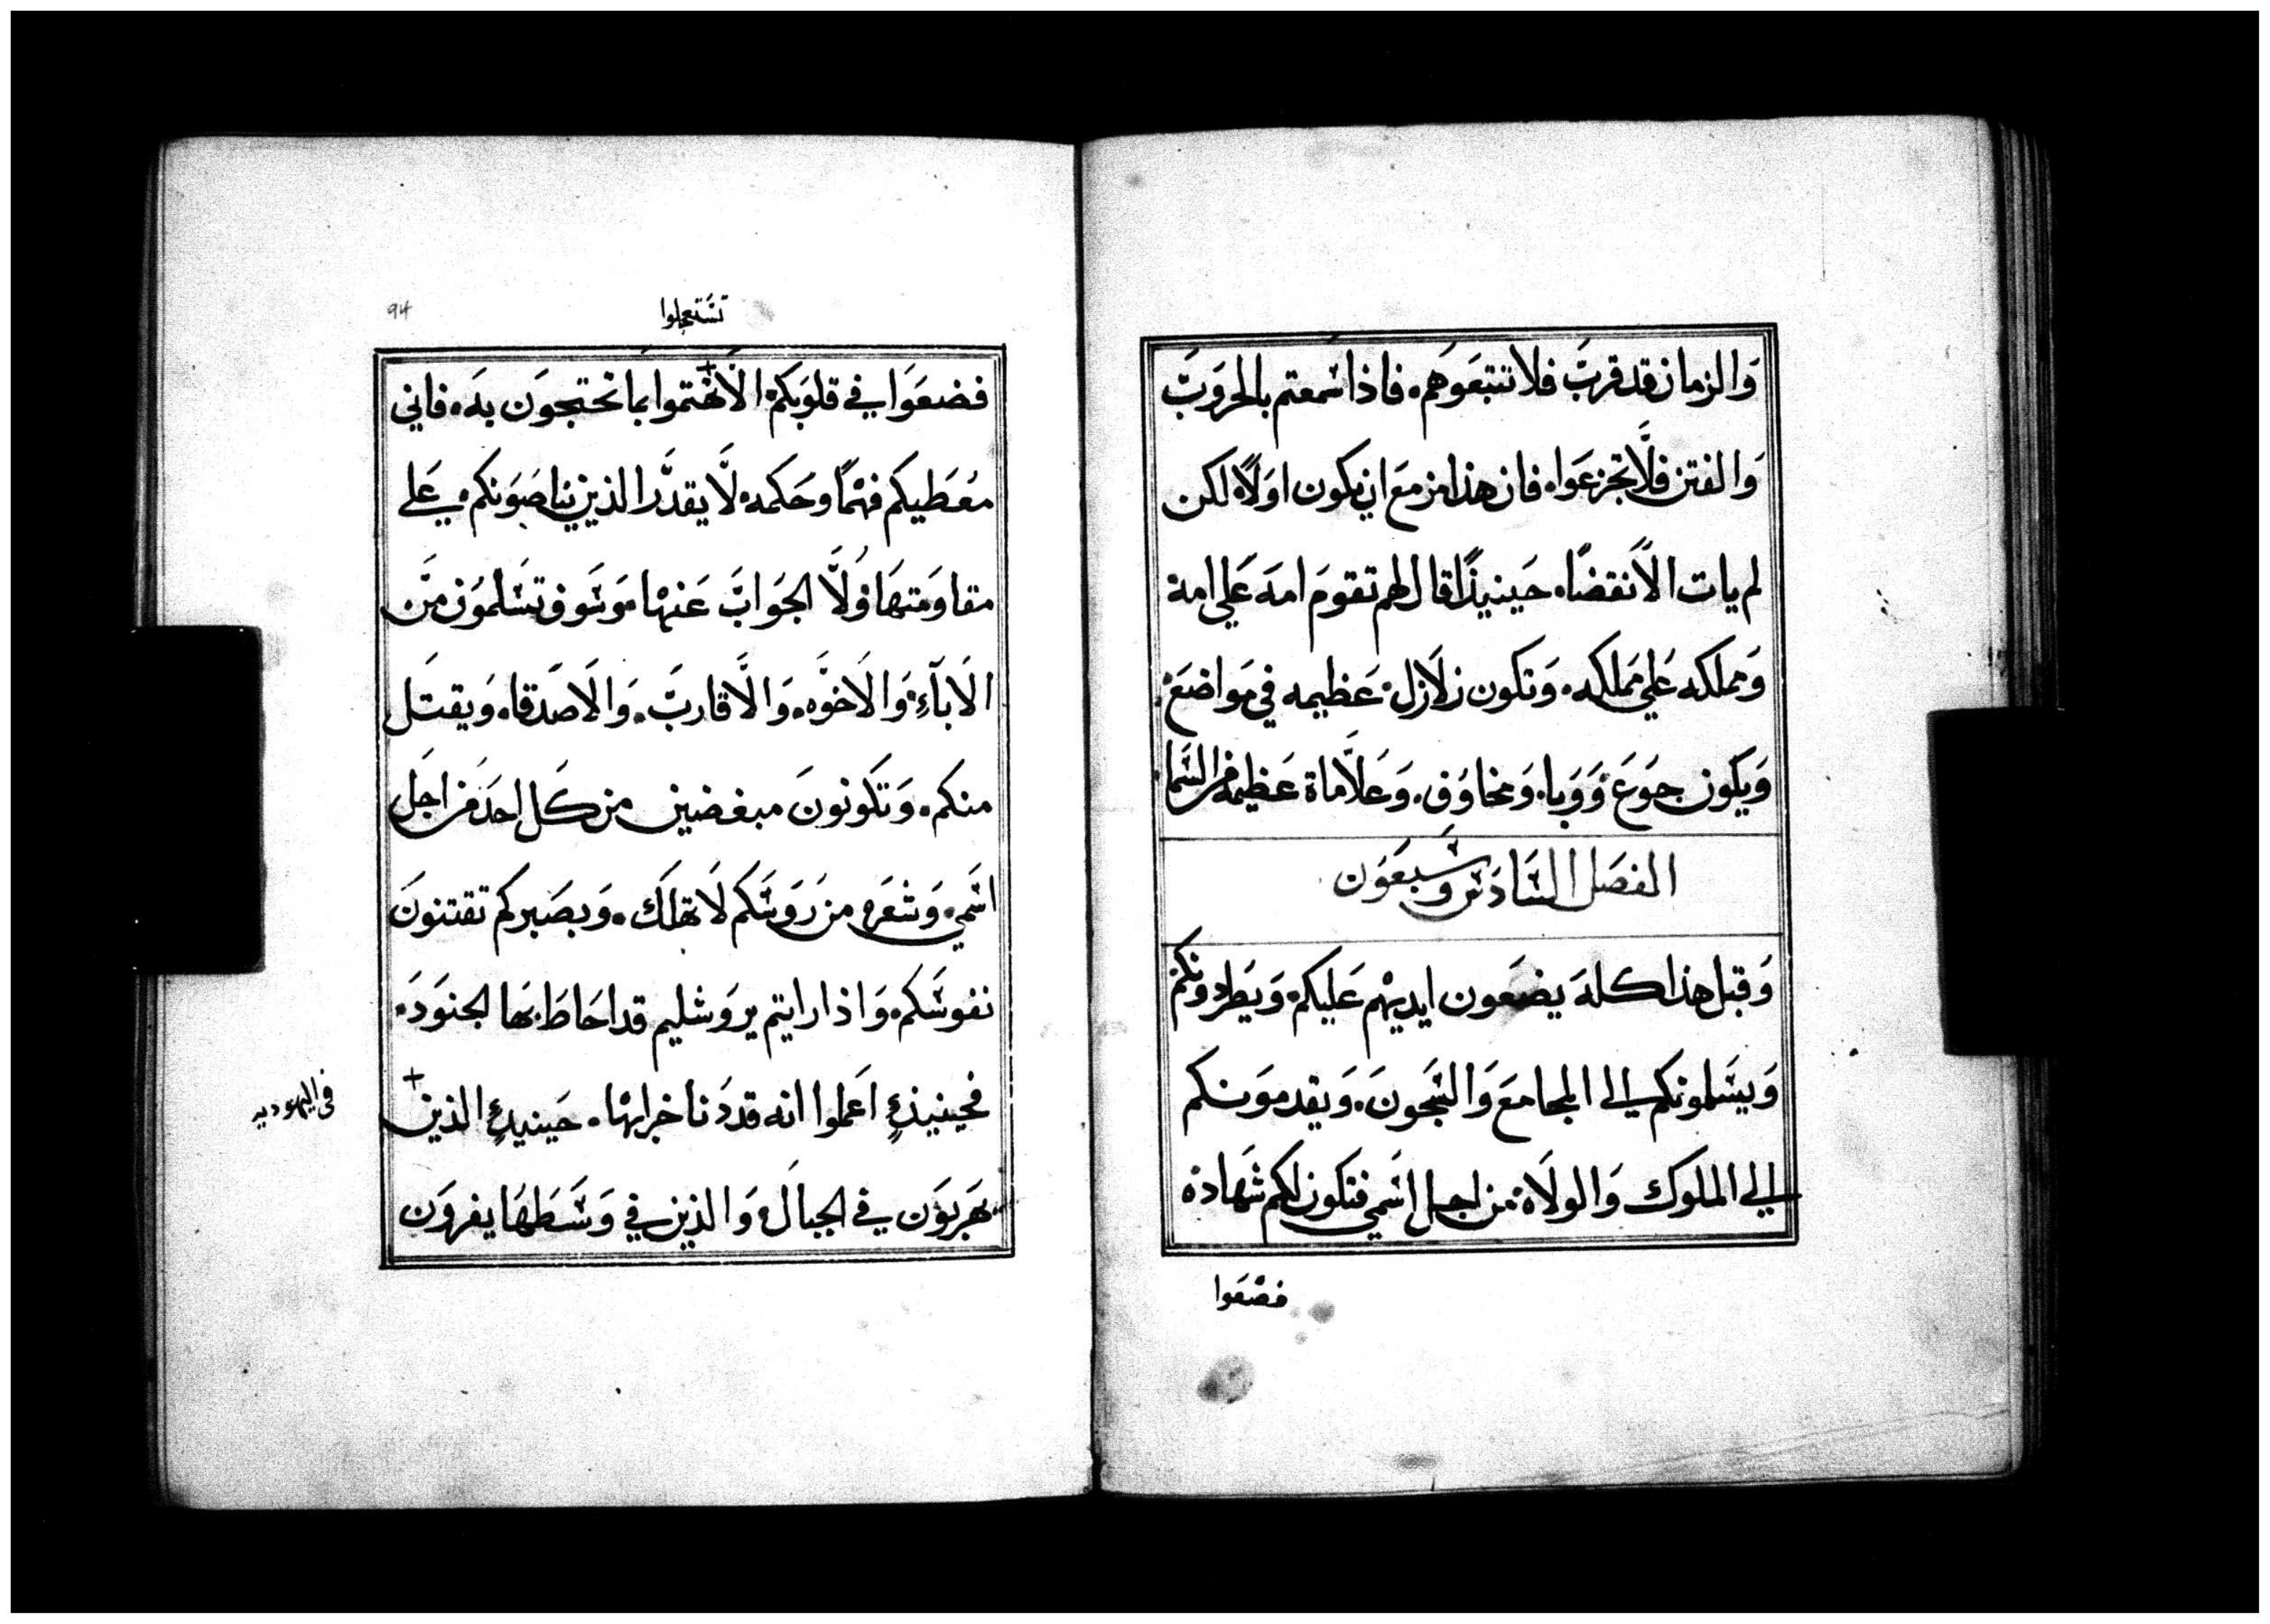 وَالزمان قد قربَّ فلا تتبعَوهَم. فاذا سمعتم بالحروَبَّ
وَالفتن فلَّا تجزعَوا. فان هذا مزمعَ ان يكون اوَلاً. لكن
لم يات الاَنقضاً. حَينيذاً قال لهم تقومَ امهَ عَلي امة
وَمملكه عَلي مملكه. وَتكون زلاَزل عَظيمه في موَاضعَ
وَيكون جوَعَ وَوَبا. وَمخاوَف. وَعَلاَّماة عَظيمه من السَّما
الفصَل السَّادسَ وسَبعَوَن
وَقبل هذا كلهَ يضعَون ايديهم عَليكم. وَيَطردونكم
وَيسَلمونكم الي المجامعَ وَالسَّجونَ. وَيقدموَنكم
الي الملوك وَالولاَة من اجل اسَمي فتكون لكم شَهادة
فضعَوا
تسَتعجلوا
94
فضعَوَا في قلوَبكم الاَّ تهَتموا بما تحتجوَن بهَ. فاني
معَطيكم فهمًا وحَكمه. لَّا يقدَّر الذين يناصَوَنكم عَلي
مقاوَمتهَا وُلَّا الجوَابَّ عَنها. وَسَوف تسَلموَن منَّ
الاَبآءِ وَالاَخوَّه. وَالَّاقاربَّ. وَالاَصدَقا. وَيقتَل
منكم. وَتكونونَ مبغضين من كل احدَ من اجَل
اسَمي. وَشعَره من رَوَسَكم لاَ تهلَك. وَبصَبركم تقتنونَ
نفوسَكم. وَاذا رايتم يروَشليم قد احَاطَ بهَا الجنوَدَ.
فحينيذٍ اعَلموا انه قد دَنا خرابها. حَينيذٍ الذين
في اليهوديه
يهَربوَن في الجبالَ وَالذين في وَسَطهَا يفروَن